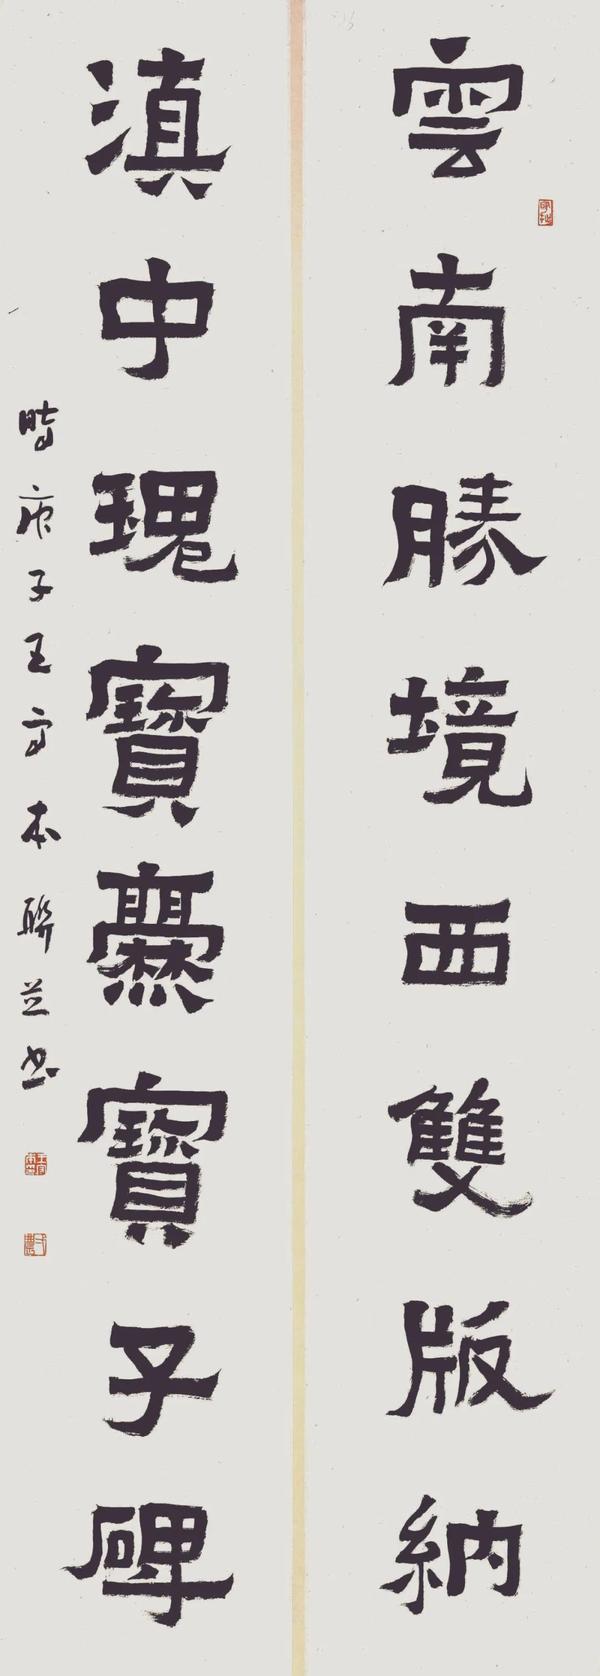 雲南勝境西雙版納
滇中瑰寶爨寶子碑
時庚子王高本聯並書